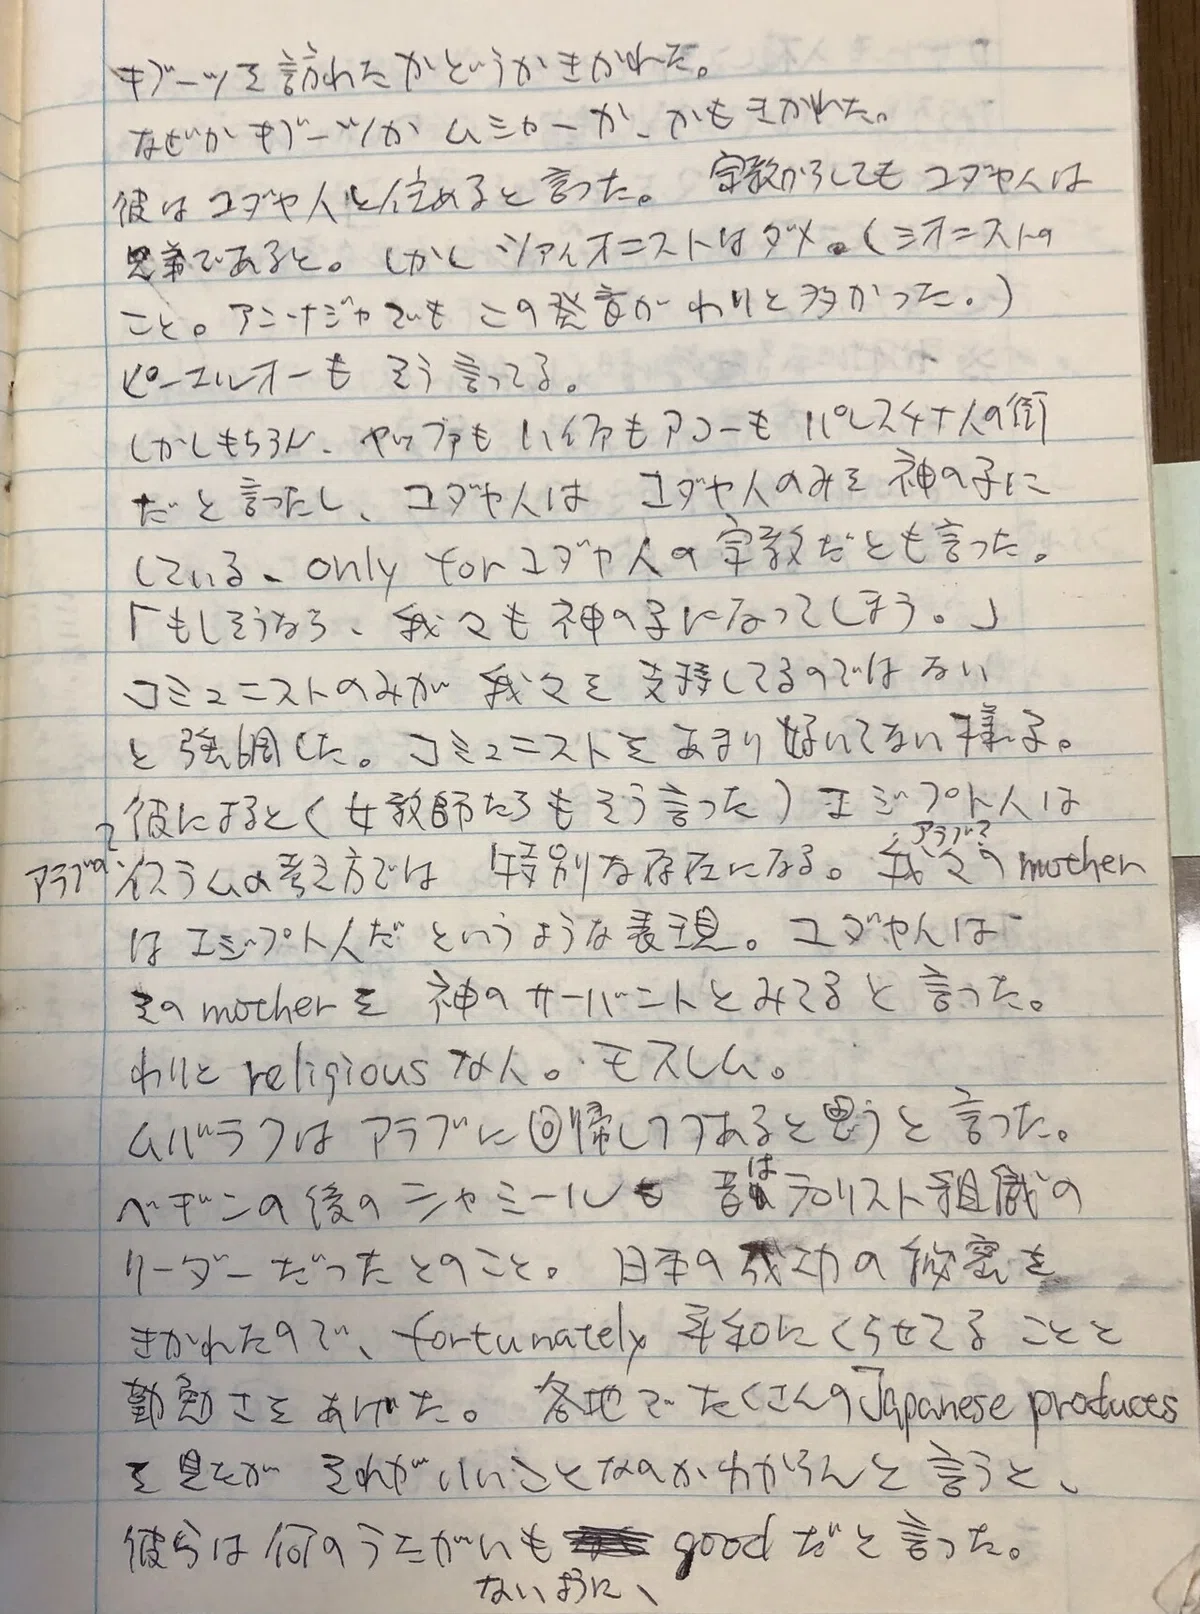 キブーツを訪れたかというかきかれた。
なぜかキブーツか ムシャーか、かもきかれた。
彼はユダヤ人と住めると言った。 宗教からしてもユダヤ人は
兄弟であると。しかし ツァイオニストはダメ。(シオニストの
こと。アンナジャでも この発音が わりと多かった。)
ピーエルオーも そう言ってる。
しかしもちろん、ヤッファもハイファもアコーも パレスチナ人の街
だと言ったし、ユダヤ人は ユダヤ人のみを 神の子に
している、only for ユダヤ人の宗教だとも言った。
「もしそうなら、我々も神の子になってしまう。」
コミュニストのみが 我々を 支持してるのではない
と強調した。コミュニストをあまり好いてない様子。
彼によると(女教師たちもそう言った)エジプト人は
アラブの?イスラムの考え方では 特別な存在になる。我々のmother
アラブ?
はエジプト人だ というような表現。ユダヤ人は
そのmotherを 神のサーバントとみてると言った。
わりと religious な人。モスレム。
ムバラクは アラブに回帰しつつあると思うと言った。
ベギンの後のシャミールも 昔はテロリスト組織の
リーダーだったとのこと。 日本の成功の秘密を
きかれたので、fortunately 平和にくらせてることと
勤勉さをあげた。 各地でたくさんのJapanese products
を見たが それがいいことなのかわからんと言うと、
彼らは何のうたがいも good だと言った。
ないように、